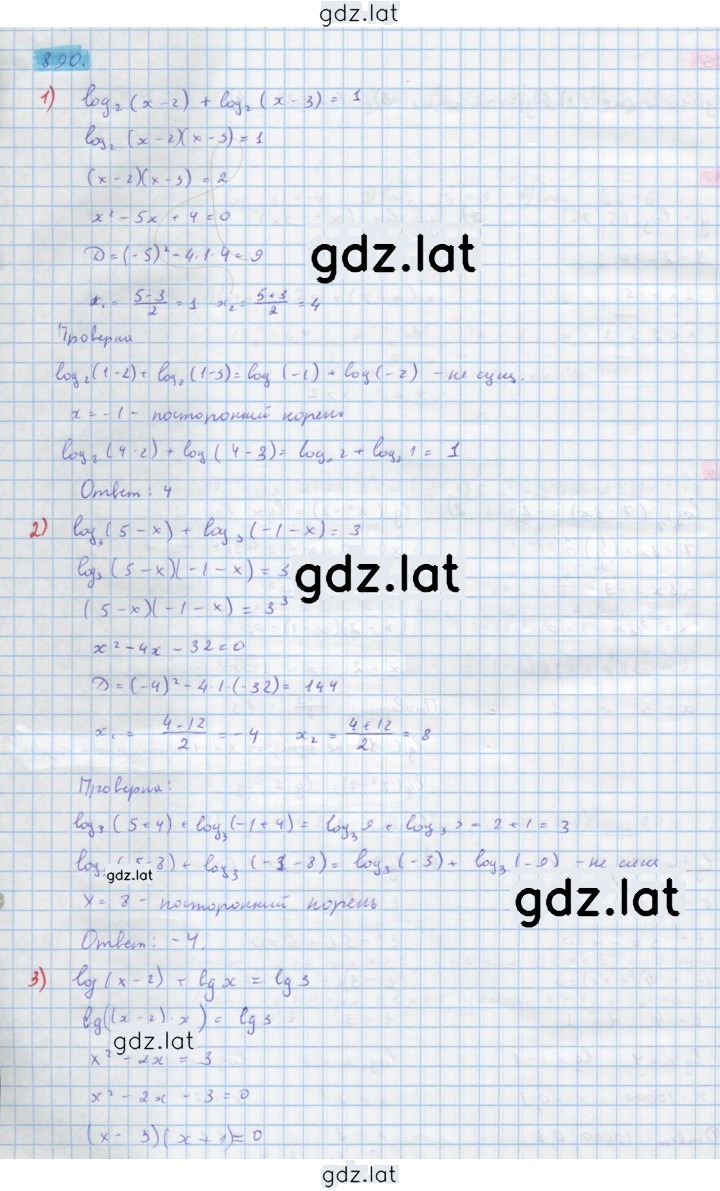 gdz.lat
890.
1) log₂(x-2) + log₂(x-3) = 1
log₂(x-2)(x-3) = 1
(x-2)(x-3) = 2
x² - 5x + 4 = 0
gdz.lat
D = (-5)² - 4·1·4 = 9
x₁ = (5-3)/2 = 1 x₂ = (5+3)/2 = 4
Проверка
log₂(1-2) + log₂(1-3) = log(-1) + log(-2) - не сущ.
x = -1 - посторонний корень
log₂(4-2) + log(4-3) = log₂2 + log₂1 = 1
Ответ: 4
2) log₃(5-x) + log₃(-1-x) = 3
log₃(5-x)(-1-x) = 3
gdz.lat
(5-x)(-1-x) = 3³
x² - 4x - 32 = 0
D = (-4)² - 4·1·(-32) = 144
x₁ = (4-12)/2 = -4 x₂ = (4+12)/2 = 8
Проверка:
log₃(5+4) + log₃(-1+4) = log₃9 + log₃3 = 2+1 = 3
log₃(5-8) + log₃(-1-8) = log₃(-3) + log₃(-9) - не сущ
gdz.lat
gdz.lat
x = 8 - посторонний корень
Ответ: -4.
3) log(x-2) + lg x = lg 3
lg((x-2)·x) = lg 3
gdz.lat
x² - 2x = 3
x² - 2x - 3 = 0
(x-3)(x+1) = 0
gdz.lat